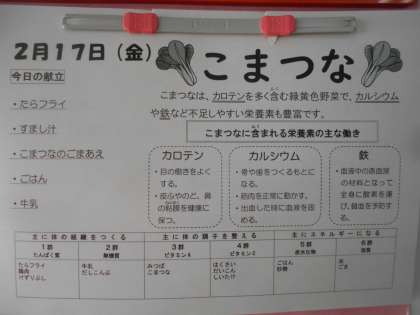 2月17日（金）
こまつな
今日の献立
・たらフライ
・すまし汁
・こまつなのごまあえ
・ごはん
・牛乳
こまつなは、カロテンを多く含む緑黄色野菜で、カルシウム
や鉄など不足しやすい栄養素も豊富です。
こまつなに含まれる栄養素の主な働き
カロテン
・目の働きをよく
する。
・皮ふやのど、鼻
の粘膜を健康に
保つ。
カルシウム
・骨や歯をつくるもとにな
る。
・筋肉を正常に動かす。
・出血した時に血液を固
める。
鉄
・血液中の赤血球
の材料となって
全身に酸素を運
び、貧血を予防す
る。
主に体の組織をつくる
主に体の調子を整える
主にエネルギーになる
1群
たんぱく質
2群
無機質
3群
ビタミンA
4群
ビタミンC
5群
炭水化物
6群
脂質
たらフライ
鶏肉
けずりぶし
牛乳
だしこんぶ
みつば
こまつな
はくさい
だいこん
しいたけ
ごはん
砂糖
ごま